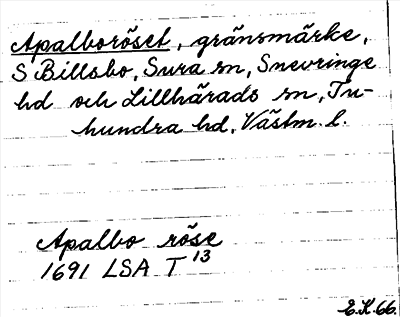 Apalboröset, gränsmärke,
S Billsbo, Sura sn, Snevringe
hd och Lillhärads sn, Tu-
hundra hd, Västm. l.
Apalbo röse
1691 LSA T 13
E.K. 66.